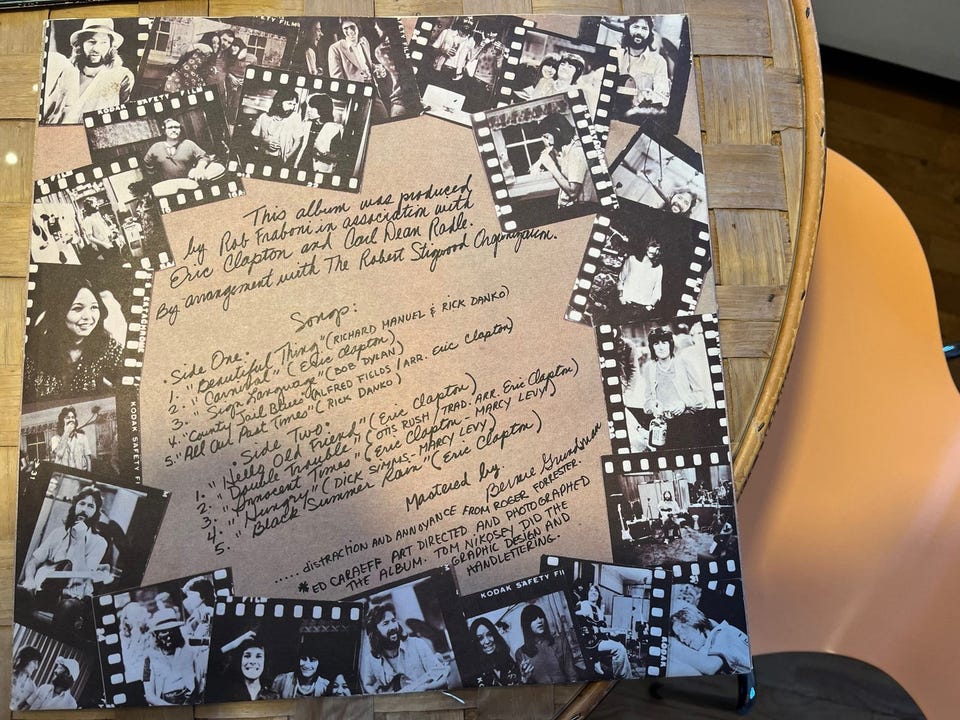 SAFETY FILM
KODAK SAFETY FILM
This album was produced
by Rob Fraboni in association with
Eric Clapton and Carl Dean Radle.
By arrangement with The Robert Stigwood Organization.
Songs:
• Side One.
1. "Beautiful Thing" (RICHARD MANUEL & RICK DANKO)
2. "Carnival" (Eric Clapton)
3. "Sign Language" (BOB DYLAN)
4. "County Jail Blues" (ALFRED FIELDS / ARR. Eric Clapton)
5. "All Our Past Times" (RICK DANKO)
• Side Two.
1. "Hello Old Friend" (Eric Clapton)
2. "Double Trouble" (OTIS RUSH / TRAD. ARR. Eric Clapton)
3. "Innocent Times" (Eric Clapton - MARCY LEVY)
4. "Hungry" (DICK SIMMS - MARCY LEVY)
5. "Black Summer Rain" (Eric Clapton)
Mastered by:
Bernie Grundman
..... distraction AND ANNOYANCE FROM ROGER FORRESTER.
*ED CARAEFF ART DIRECTED AND PHOTOGRAPHED
THE ALBUM. TOM NIKOSEY DID THE
GRAPHIC DESIGN AND
HANDLETTERING.
KODAK S
KODAK SAFETY FI
KODAK